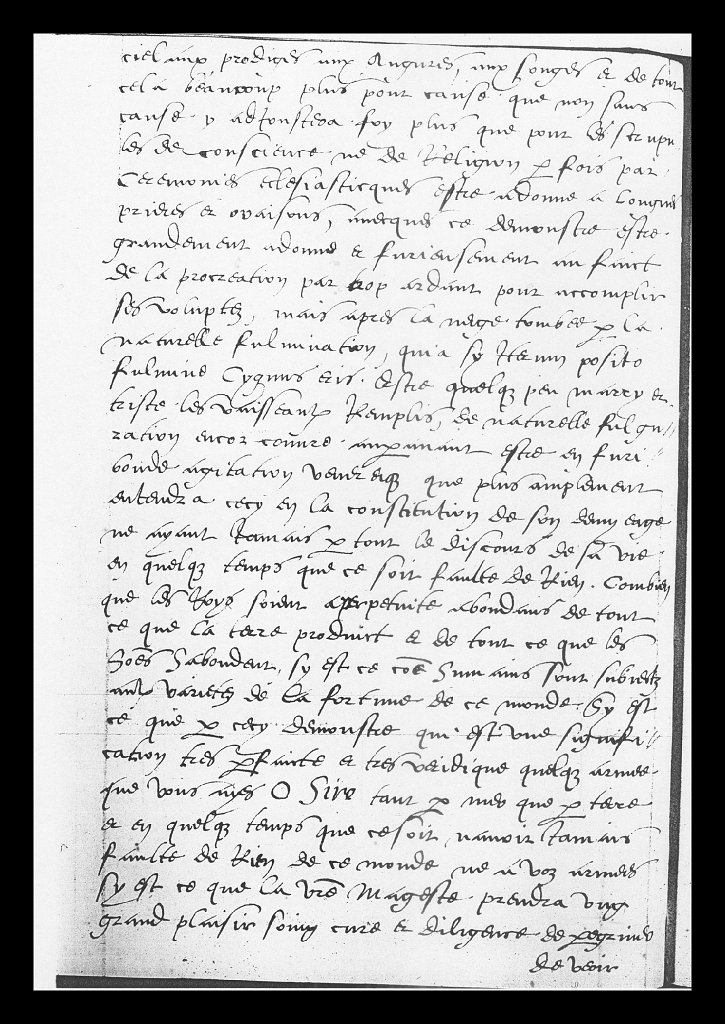 ciel aux prodiges aux Augures, aux songes et de tout
cela beaucoup plus pour cause que non sans
cause y adjoustera foy plus que pour les scrupu
les de conscience ne de Religion p fois par
Ceremonies eclesiasticques estre adonné a longues
prieres et oraisons, avecques ce demonstre estre
grandement adonné et furieusement au faict
de la procreation par trop ardant pour accomplir
ses voluptez, mais apres la nege tombee p la
naturelle fulmination, qui a sy iterum posito
fulmine Cygnus eris. Estre quelq peu marry et
triste les vaisseaulx Remplis, de naturelle fulgu"
ration encor couvre auparavant estre en furi"
bonde agitation que plus amplement
entendra cecy en la constitution de son demy eage
ne ayant Jamais p tout le discours de sa vie
en quelq temps que ce soit faulte de Rien. Combien
que les Roys soient aperpetuité abondans de tout
ce que la terre produict et de tout ce que les
hoes habondent, sy est ce coe humains sont subiectz
aulx varietes de la fortune de ce monde. Sy est
ce que p cecy demonstre qui est une signifi"
cation tres pfaicte et tres veridique quelq armee
que vous ayes O Sire tant p mer que p terre
et en quelq temps que ce soit navoir Jamais
faulte de Rien de ce monde ne a voz armees
sy est ce que la vre Mageste prendra ung
grand plaisir soing cure et diligence de pegriner
de veoir